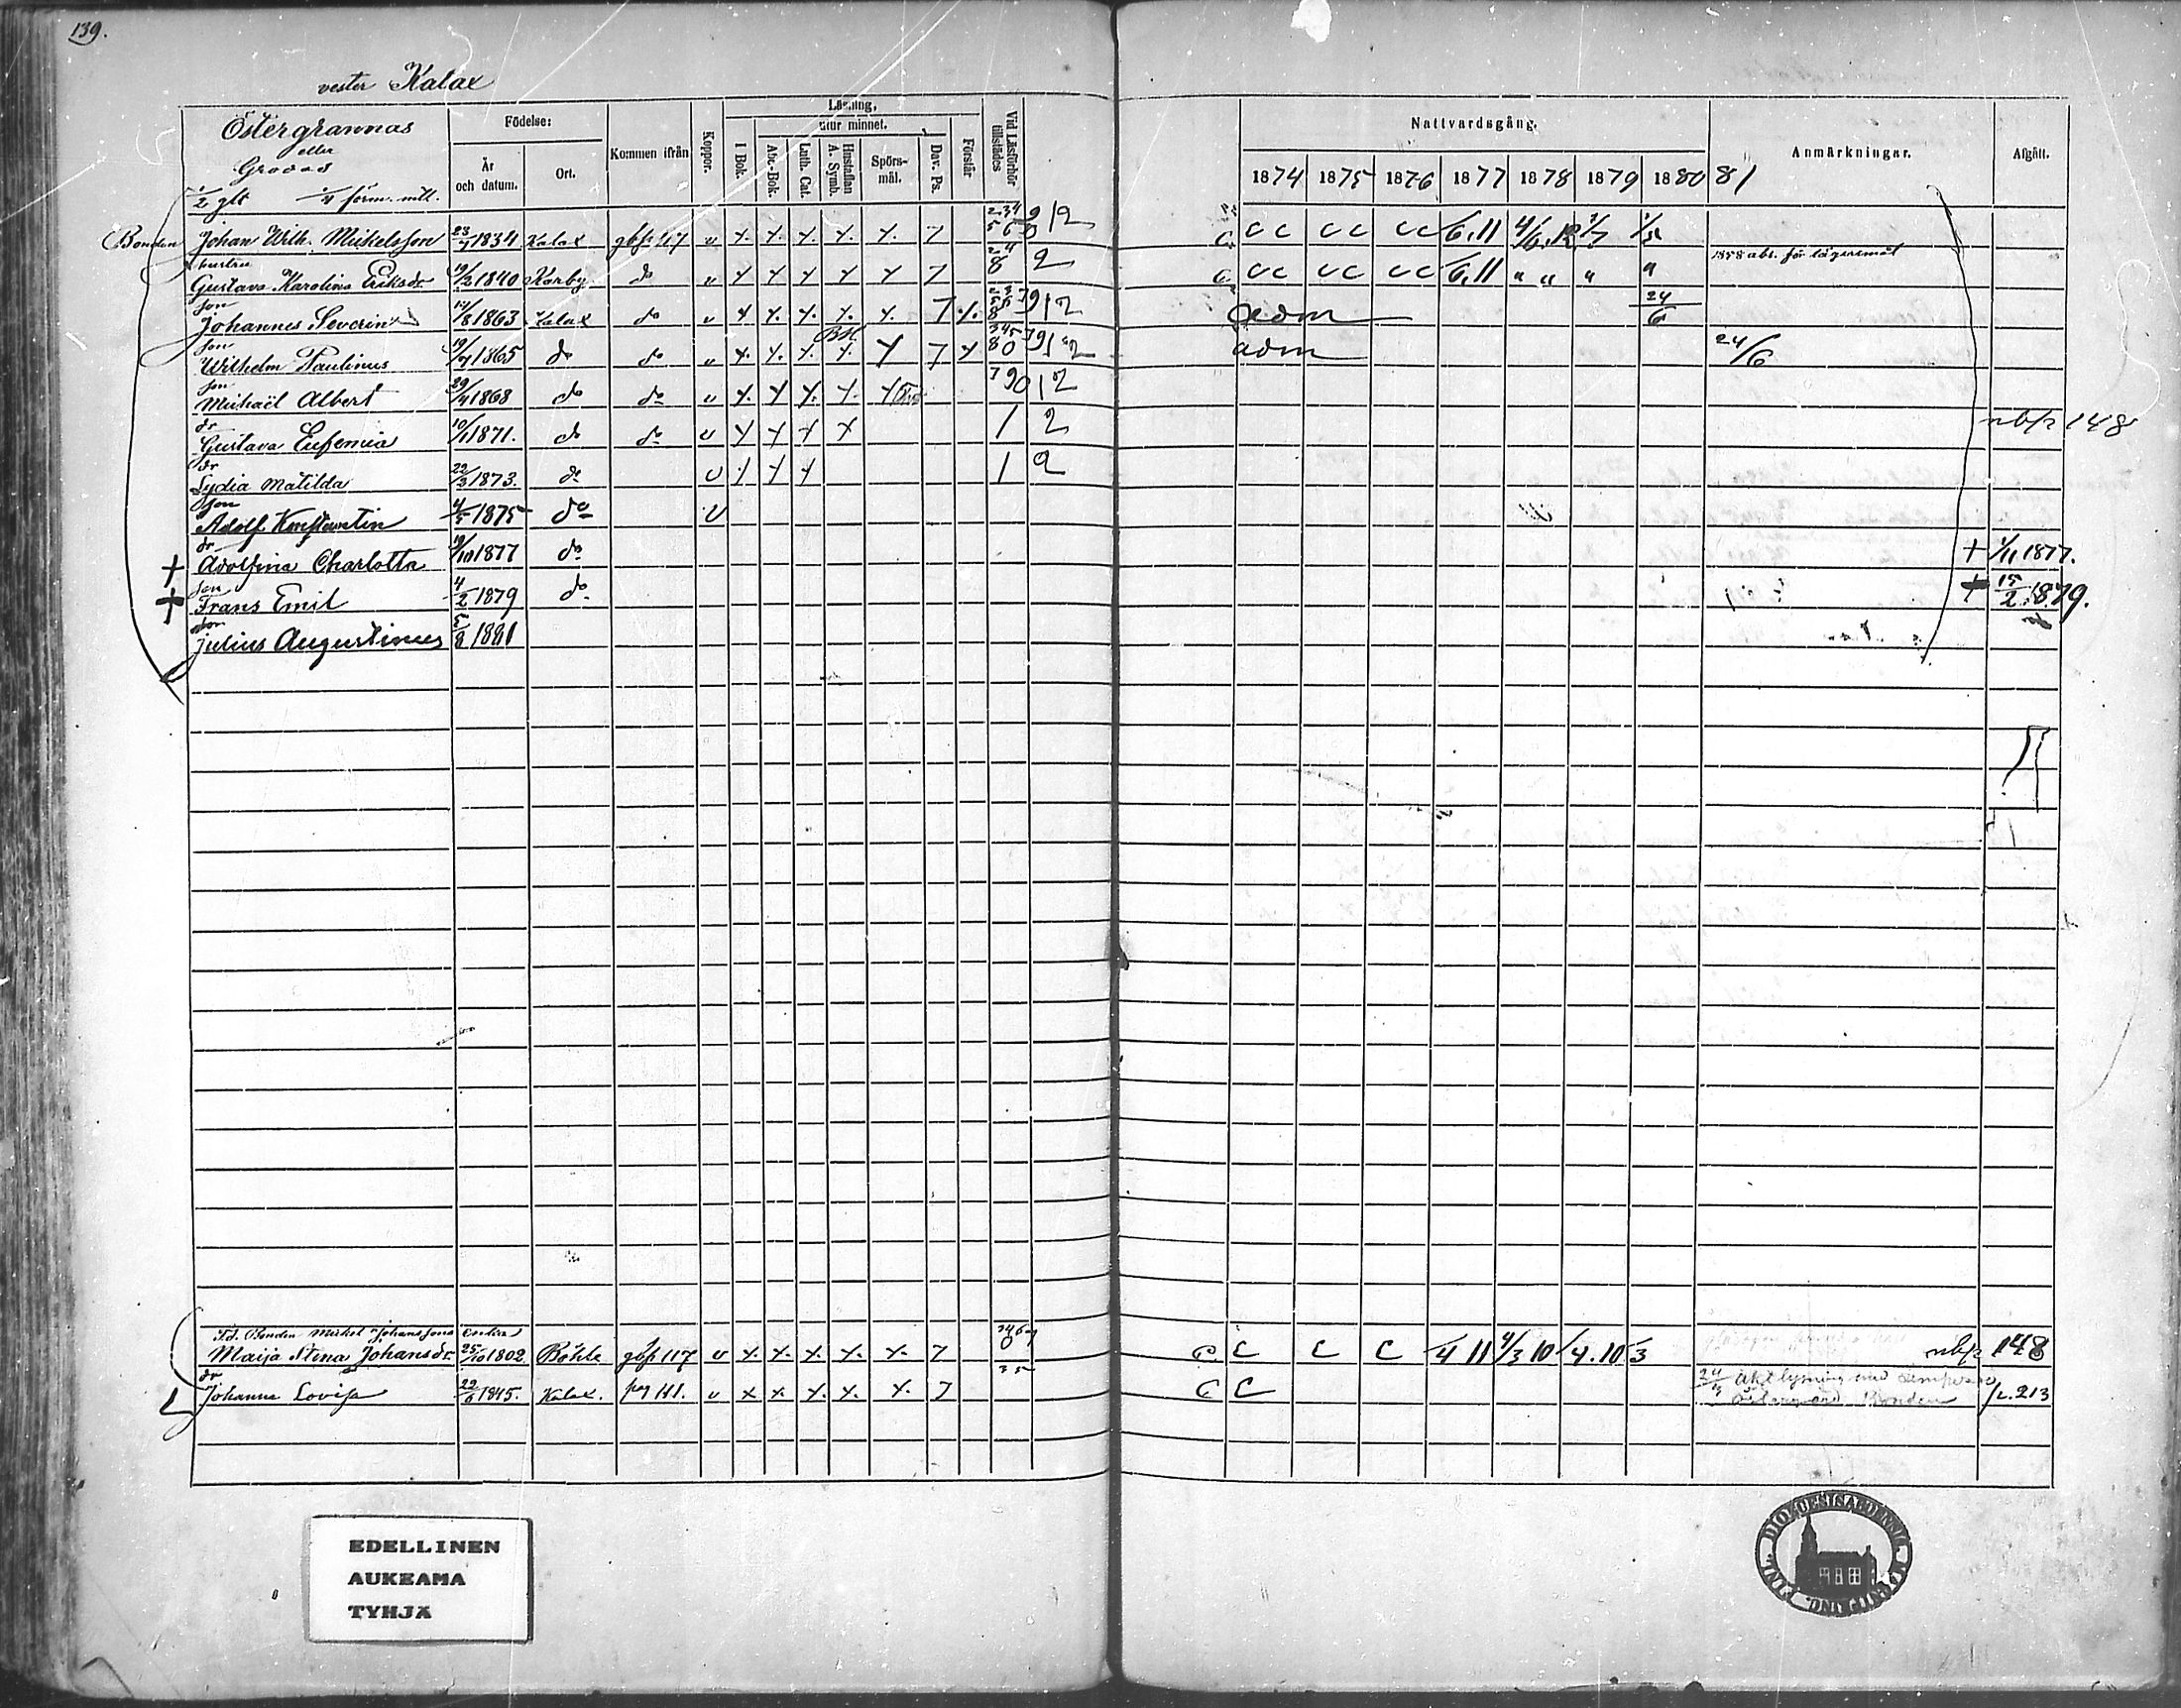 139.
vester Kalax
Östergrannas
eller
Grodas
1/2 glt 1/4 förm. mtl.
Födelse:
År och datum.
Ort.
Kommen ifrån
Koppor.
Läsning,
utur minnet.
I Bok.
Abc-Bok.
Luth. Cat.
Hustaflan A. Symb.
Spörsmål.
Dav. Ps.
Förstår
Vid Läsförhör tillstädes
Nattvardsgång.
1874 1875 1876 1877 1878 1879 1880 81
Anmärkningar.
Afgått.
Bonden Johan Wilh. Mickelsson 23/7 1834 Kalax gbp. 117 v x. x. x. x. x. 7 c cc cc cc 6.11
hustru
Gustava Karolina Eriksdr 19/2 1840 Korby do v x x x x x 7 8 2 c cc cc cc 6.11 " " " " 1858 abs. för lägersmål
son
Johannes Severin 14/8 1863 Kalax do v x x. x. x. x. 7 x. adm 24/6
son
Wilhelm Paulinus 19/7 1865 do do v x. x. x. x. x 7 x adm 24/6
son
Michaël Albert 29/4 1868 do do v x. x x. x. x 7 9 0 1 2
dr
Gustava Eufemia 10/11 1871. do do v x x x x 1 2 nbp 148
dr
Lydia Matilda 22/3 1873. do v x x x 1 2
son
Adolf Konstantin 4/5 1875 do v
dr
+ Adolfina Charlotta 19/10 1877 do + 1/11 1877.
son
+ Frans Emil 4/2 1879 do + 15/2 1879.
son
Julius Augustinus 5/8 1881
F.d. Bonden Mickel Johanssons enka
Maija Stina Johansdr. 25/10 1802 Böhle gbp 117 v x. x. x. x. x. 7 c c c c 4 11 4/3 10 4.10 3 nbp 148
dr
Johanna Lovisa 22/6 1845. Kalax. pag 111. v x x. x. x. x. 7 3 5 c c Bonden p. 213
EDELLINEN
AUKEAMA
TYHJÄ